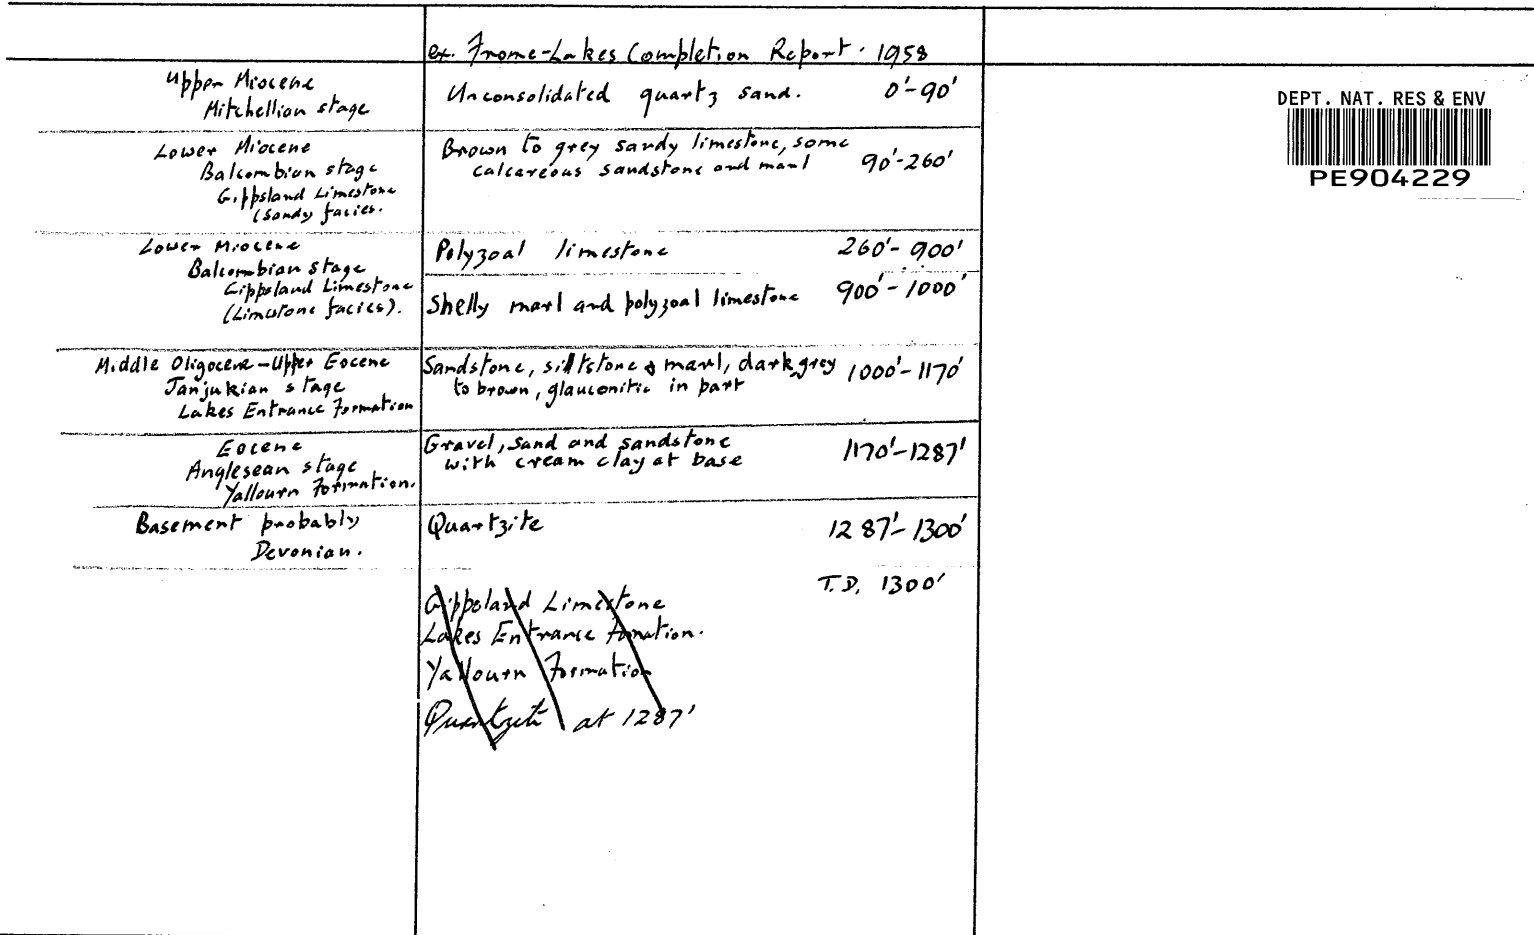 ex. Frome-Lakes Completion Report. 1958
Upper Miocene
Mitchellian stage
Unconsolidated quartz sand. 0'-90'
DEPT. NAT. RES & ENV
PE904229
Lower Miocene
Balcombian stage
Gippsland Limestone
(Sandy facies.
Brown to grey sandy limestone, some
calcareous sandstone and marl 90'-260'
Lower Miocene
Balcombian stage
Gippsland Limestone
(Limestone facies).
Polyzoal limestone 260'-900'
Shelly marl and polyzoal limestone 900'-1000'
Middle Oligocene-Upper Eocene
Janjukian stage
Lakes Entrance Formation
Sandstone, siltstone & marl, dark grey
to brown, glauconitic in part 1000'-1170'
Eocene
Anglesean stage
Yallourn Formation.
Gravel, sand and sandstone
with cream clay at base 1170'-1287'
Basement probably
Devonian.
Quartzite 1287'-1300'
T.D. 1300'
Gippsland Limestone
Lakes Entrance Fomation.
Yallourn Formation
Quartzite at 1287'